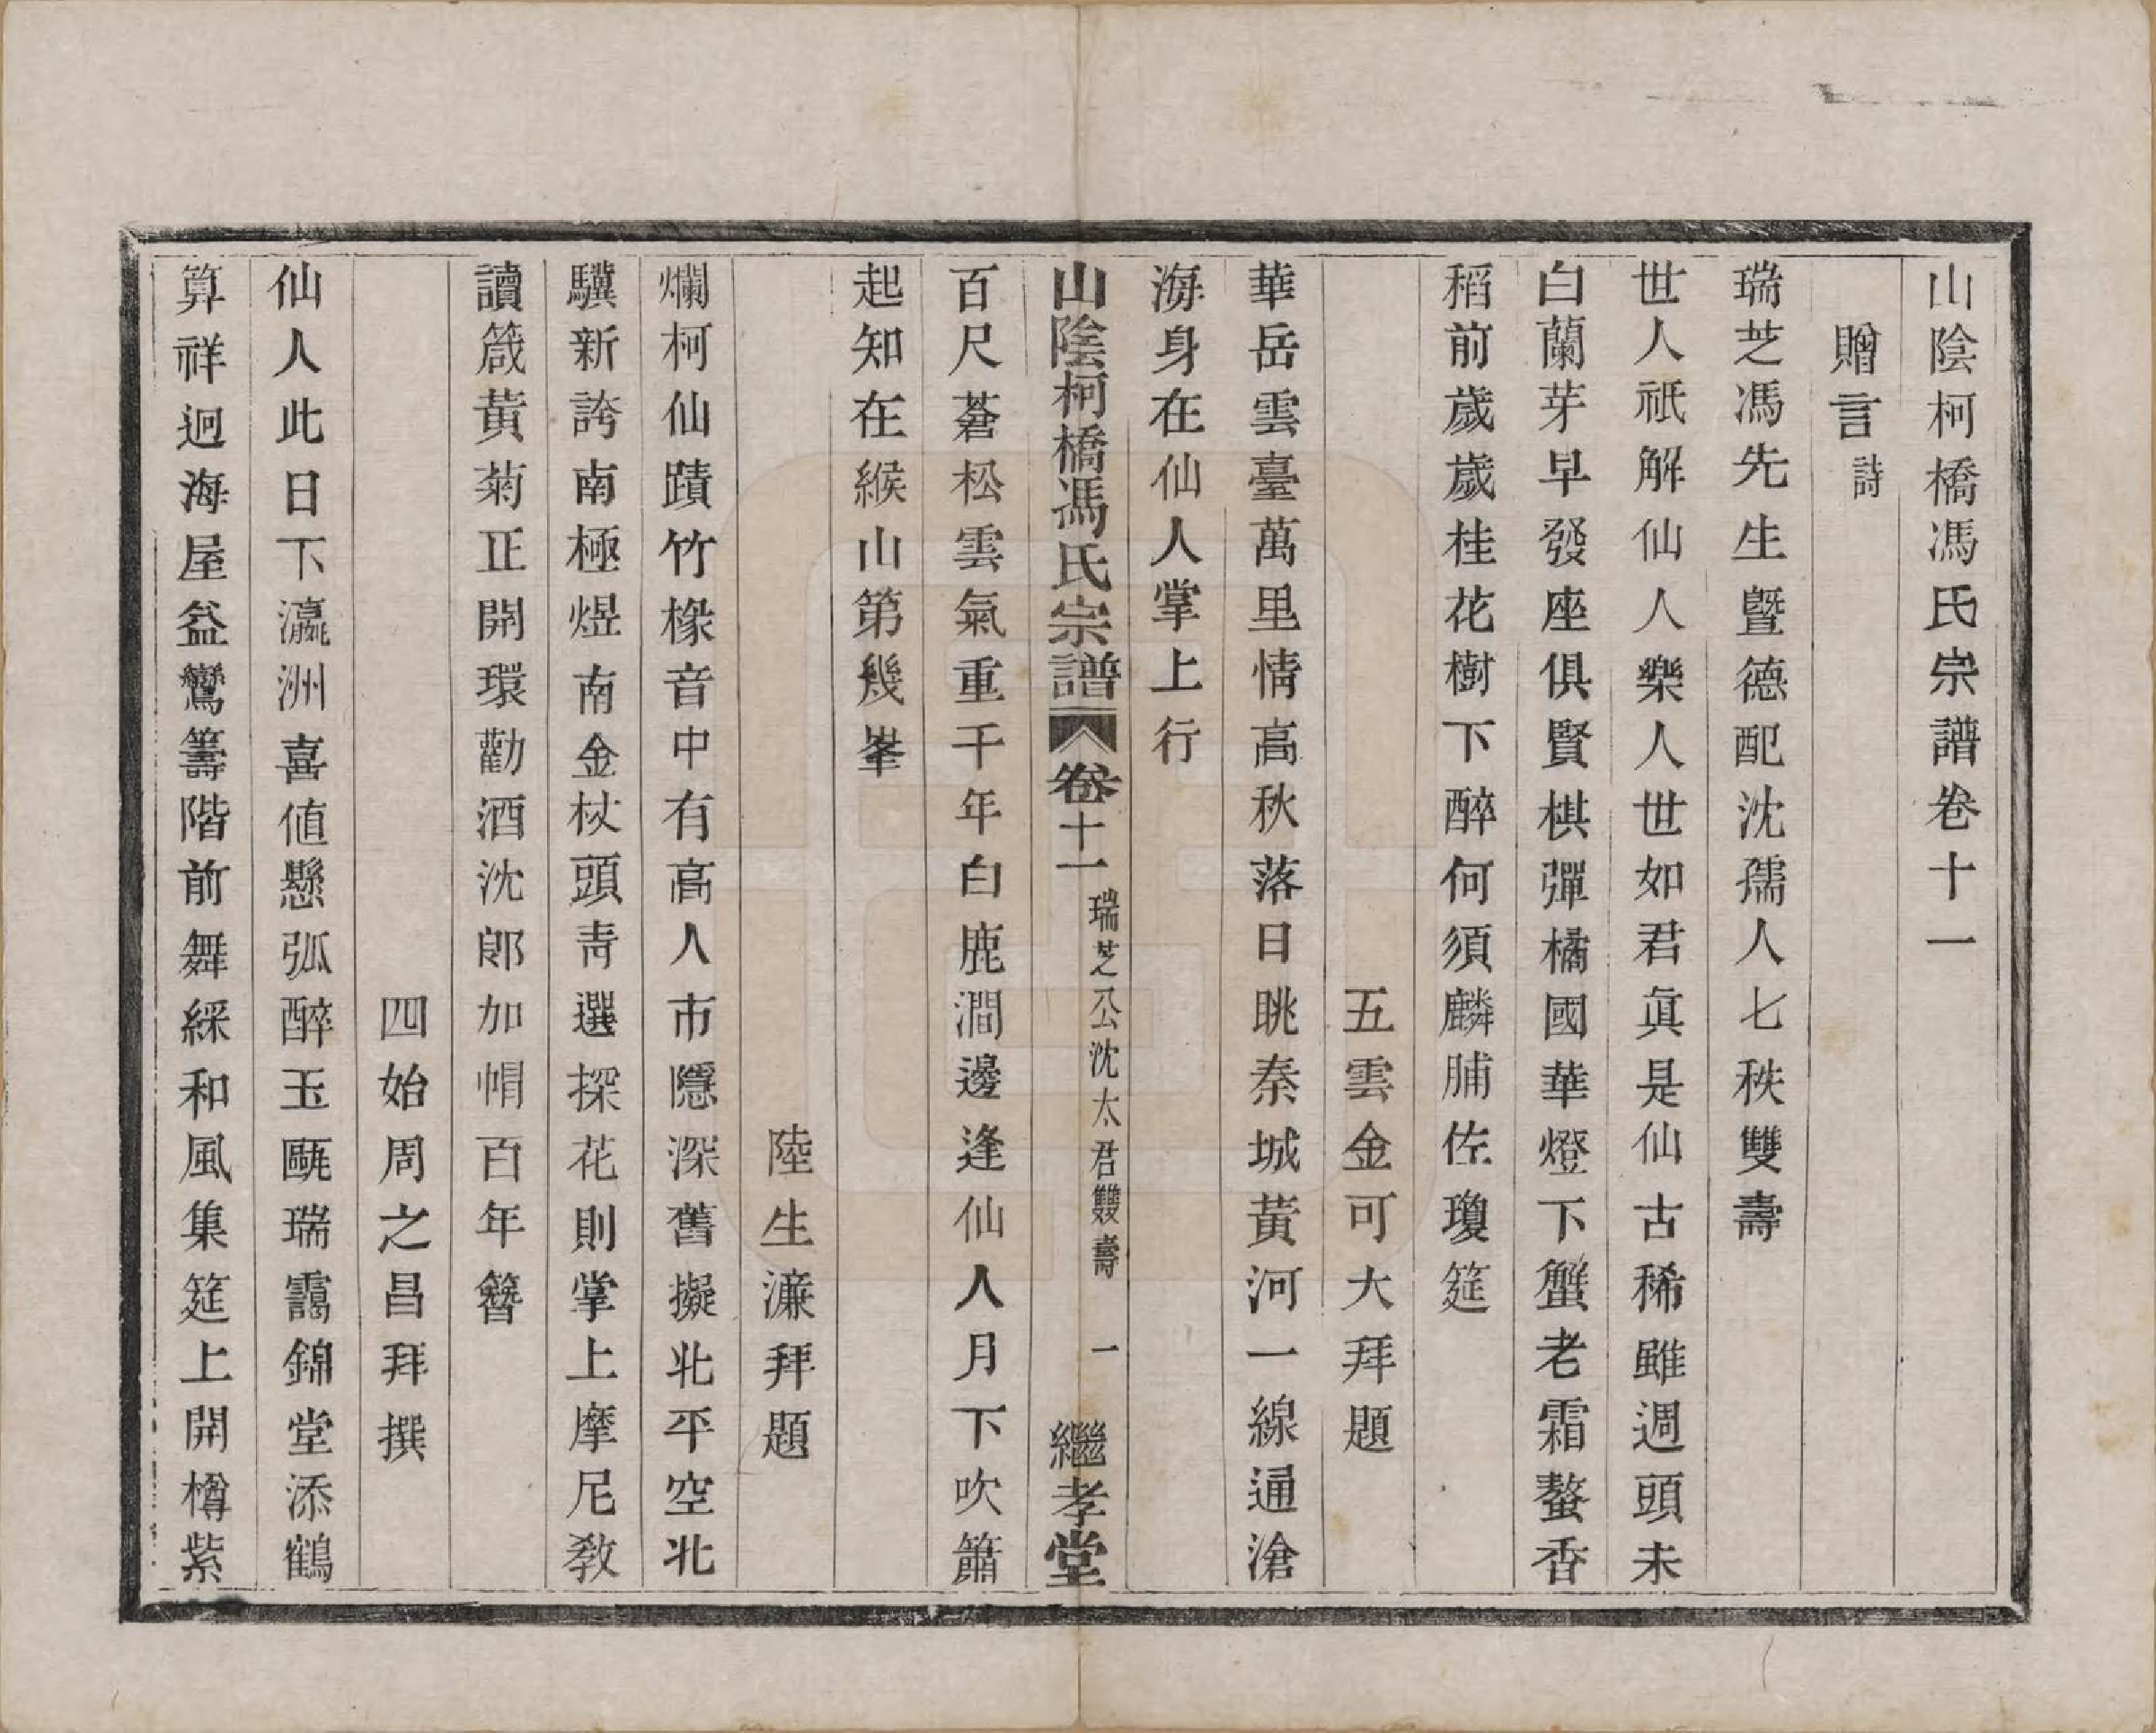 山陰柯橋馮氏宗譜卷十一
贈言 詩
瑞芝馮先生暨德配沈孺人七秩雙壽
世人祇解仙人樂人世如君眞是仙古稀雖週頭未
白蘭芽早發座俱賢棋彈橘國華燈下蟹老霜螯香
稻前歲歲桂花樹下醉何須麟脯佐瓊筵
五雲金可大拜題
華岳雲臺萬里情高秋落日眺秦城黃河一線通滄
海身在仙人掌上行
山陰柯橋馮氏宗譜 卷十一 瑞芝公沈太君雙壽 一 繼孝堂
百尺蒼松雲氣重千年白鹿澗邊逢仙人月下吹簫
起知在緱山第幾峯
陸生濂拜題
爛柯仙蹟竹椽音中有高人市隱深舊擬北平空北
驥新誇南極煜南金杖頭靑選探花則掌上摩尼敎
讀箴黃菊正開環勸酒沈郞加帽百年簪
四始周之昌拜撰
仙人此日下瀛洲喜値懸弧醉玉甌瑞靄錦堂添鶴
算祥迴海屋益鸞籌階前舞綵和風集筵上開樽紫